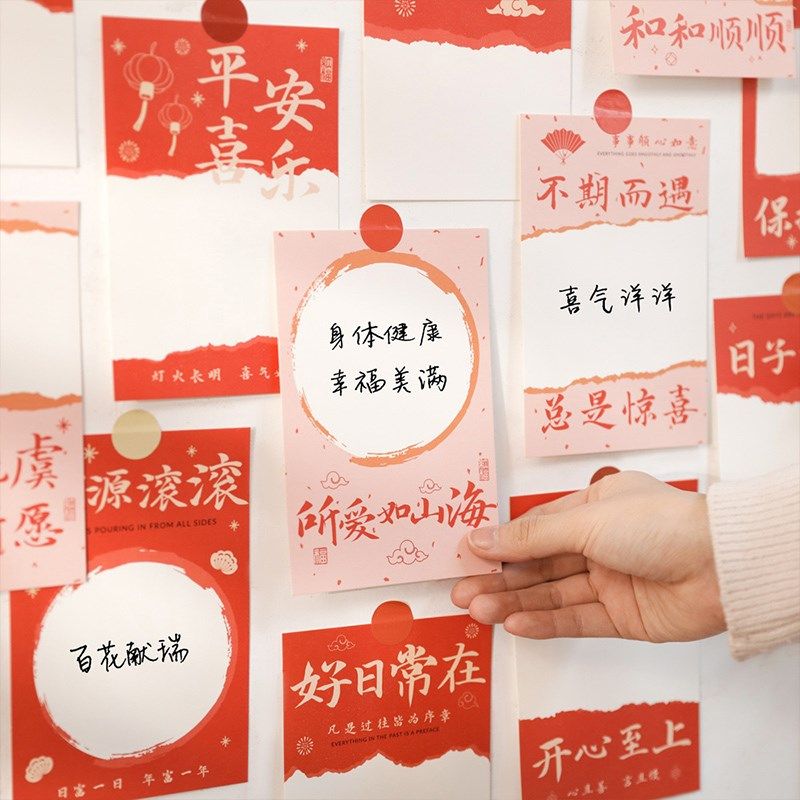 平安
喜乐
灯火长明 喜气
和和顺顺
事事顺心如意
EVERYTHING GOES SMOOTHLY AND SMOOTHLY
不期而遇
喜气洋洋
总是惊喜
身体健康
幸福美满
所爱如山海
虞
愿
源滚滚
S POURING IN FROM ALL SIDES
百花献瑞
日富一日 年富一年
好日常在
凡是过往皆为序章
EVERYTHING IN THE PAST IS A PREFACE
保
日子
开心至上
心且善 言且慢